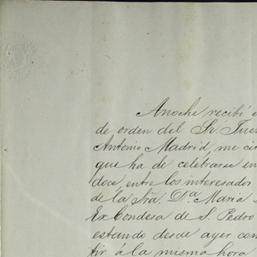 Anoche recibí
de orden del Sr. Jue
Antonio Madrid, me ci
que ha de celebrarse en
doce, entre los interesados
de la Sra. D.ª María
Ex Condesa de S. Pedro
estando desde ayer con
tir á la misma hora